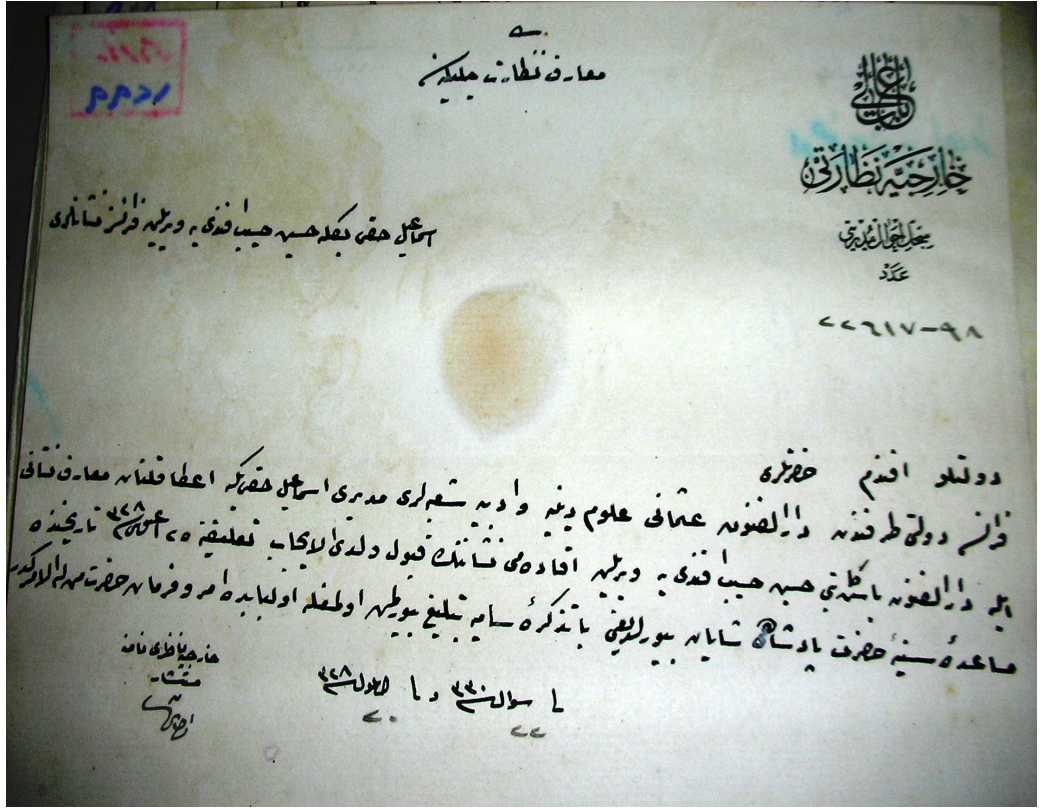 باب عالی
خارجیه نظارتی
سجل احوال مدیریتی
عدد
٢٢٦١٧-٩٨
معارف نظارت جلیله‌سنه
اسماعیل حقی بكله حسین حسیب افندی‌یه ویریلن فرانسز نشانلری
دولتلو افندم حضرتلری
فرانسه دولتی طرفندن دارالفنون عثمانی علوم دینیه و ادبیه شعبه‌لری مدیری اسماعیل حقی بكه اعطا قلنان معارف نشانی
ایله دارالفنون باش كاتبی حسین حسیب افندی‌یه ویریلن اقاده‌می نشاننك قبول و لدی الایجاب تعلیقنه ٢٥ اغستوس ٣٢٨ تاریخنده
مساعدهٔ سنیهٔ حضرت پادشاهی شایان بیورلدیغی با تذكرهٔ سامیه تبلیغ بیورلمش اولمغله اولبابده امر و فرمان حضرت من له الامركدر
فی شوال ٣٣٠ و فی ایلول ٣٢٨
٢٢ ٢٠
خارجیه ناظری نامنه
مستشار